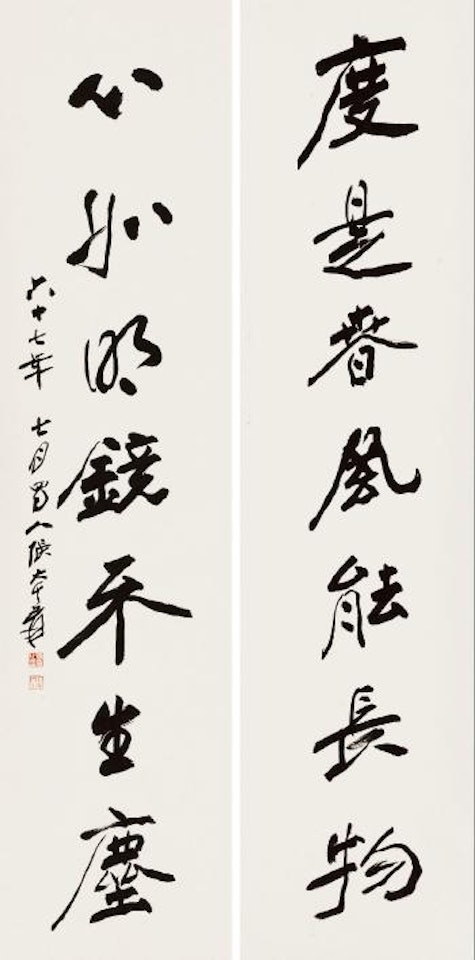 度是春風能長物
心似明鏡不生塵
六十七年七月蜀人張大千爰